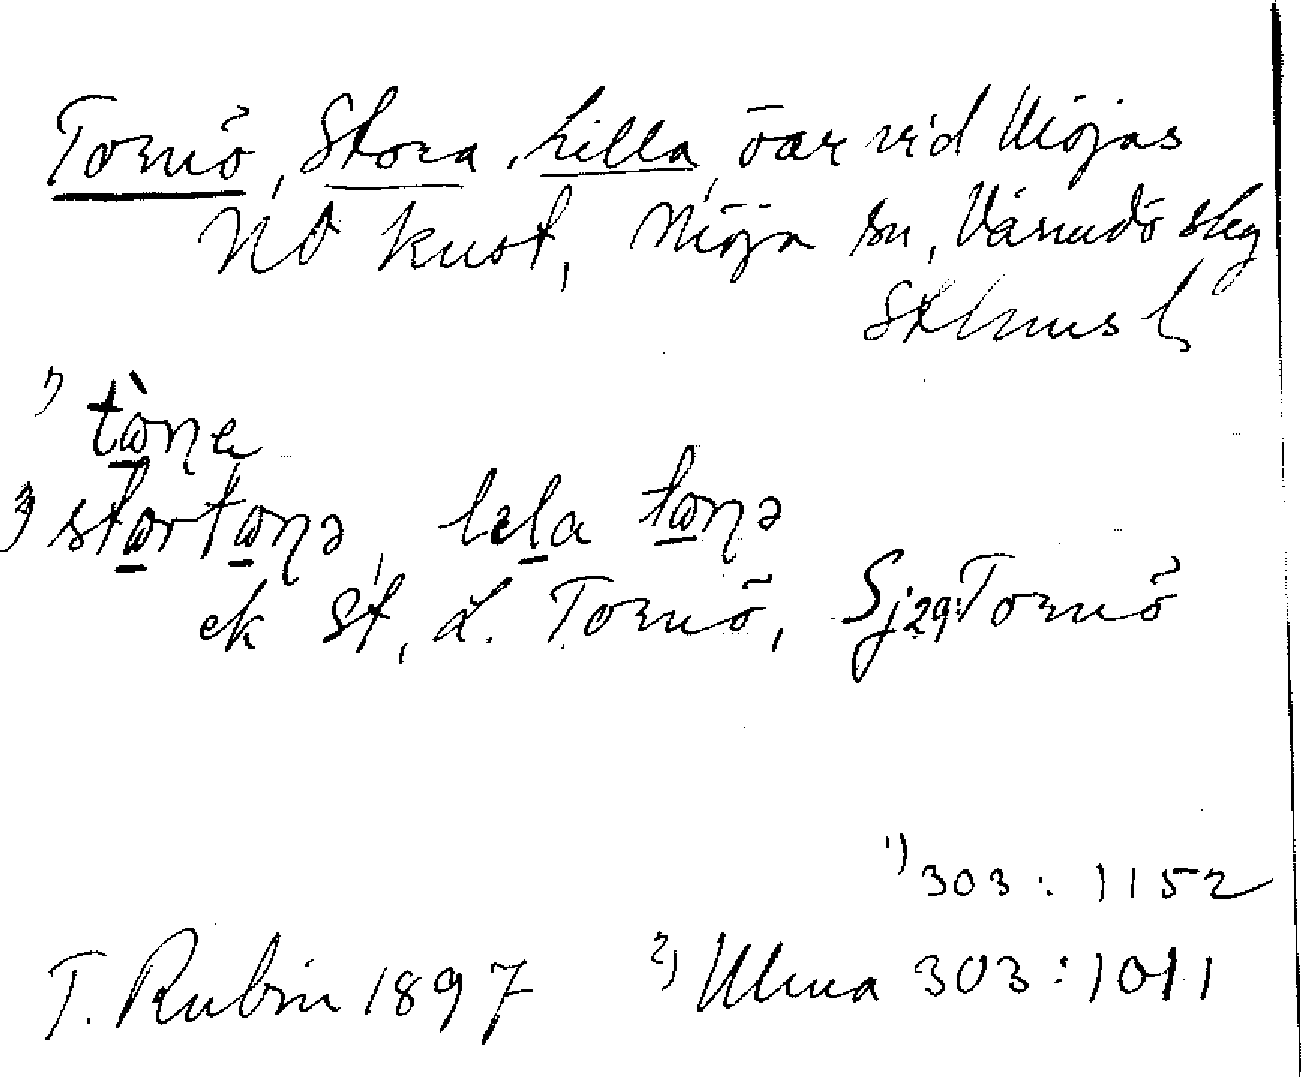 Tornö, Stora, Lilla, öar vid Möjas
NO kust, Möja sn, Värmdö skg
Sthlms l
1) tὼṇe
stωrtωṇə, lɩla tωṇə
ek St, L. Tornö, Sj29: Tornö
1) 303:1152
T. Rubin 1897 2) Ulma 303:1011